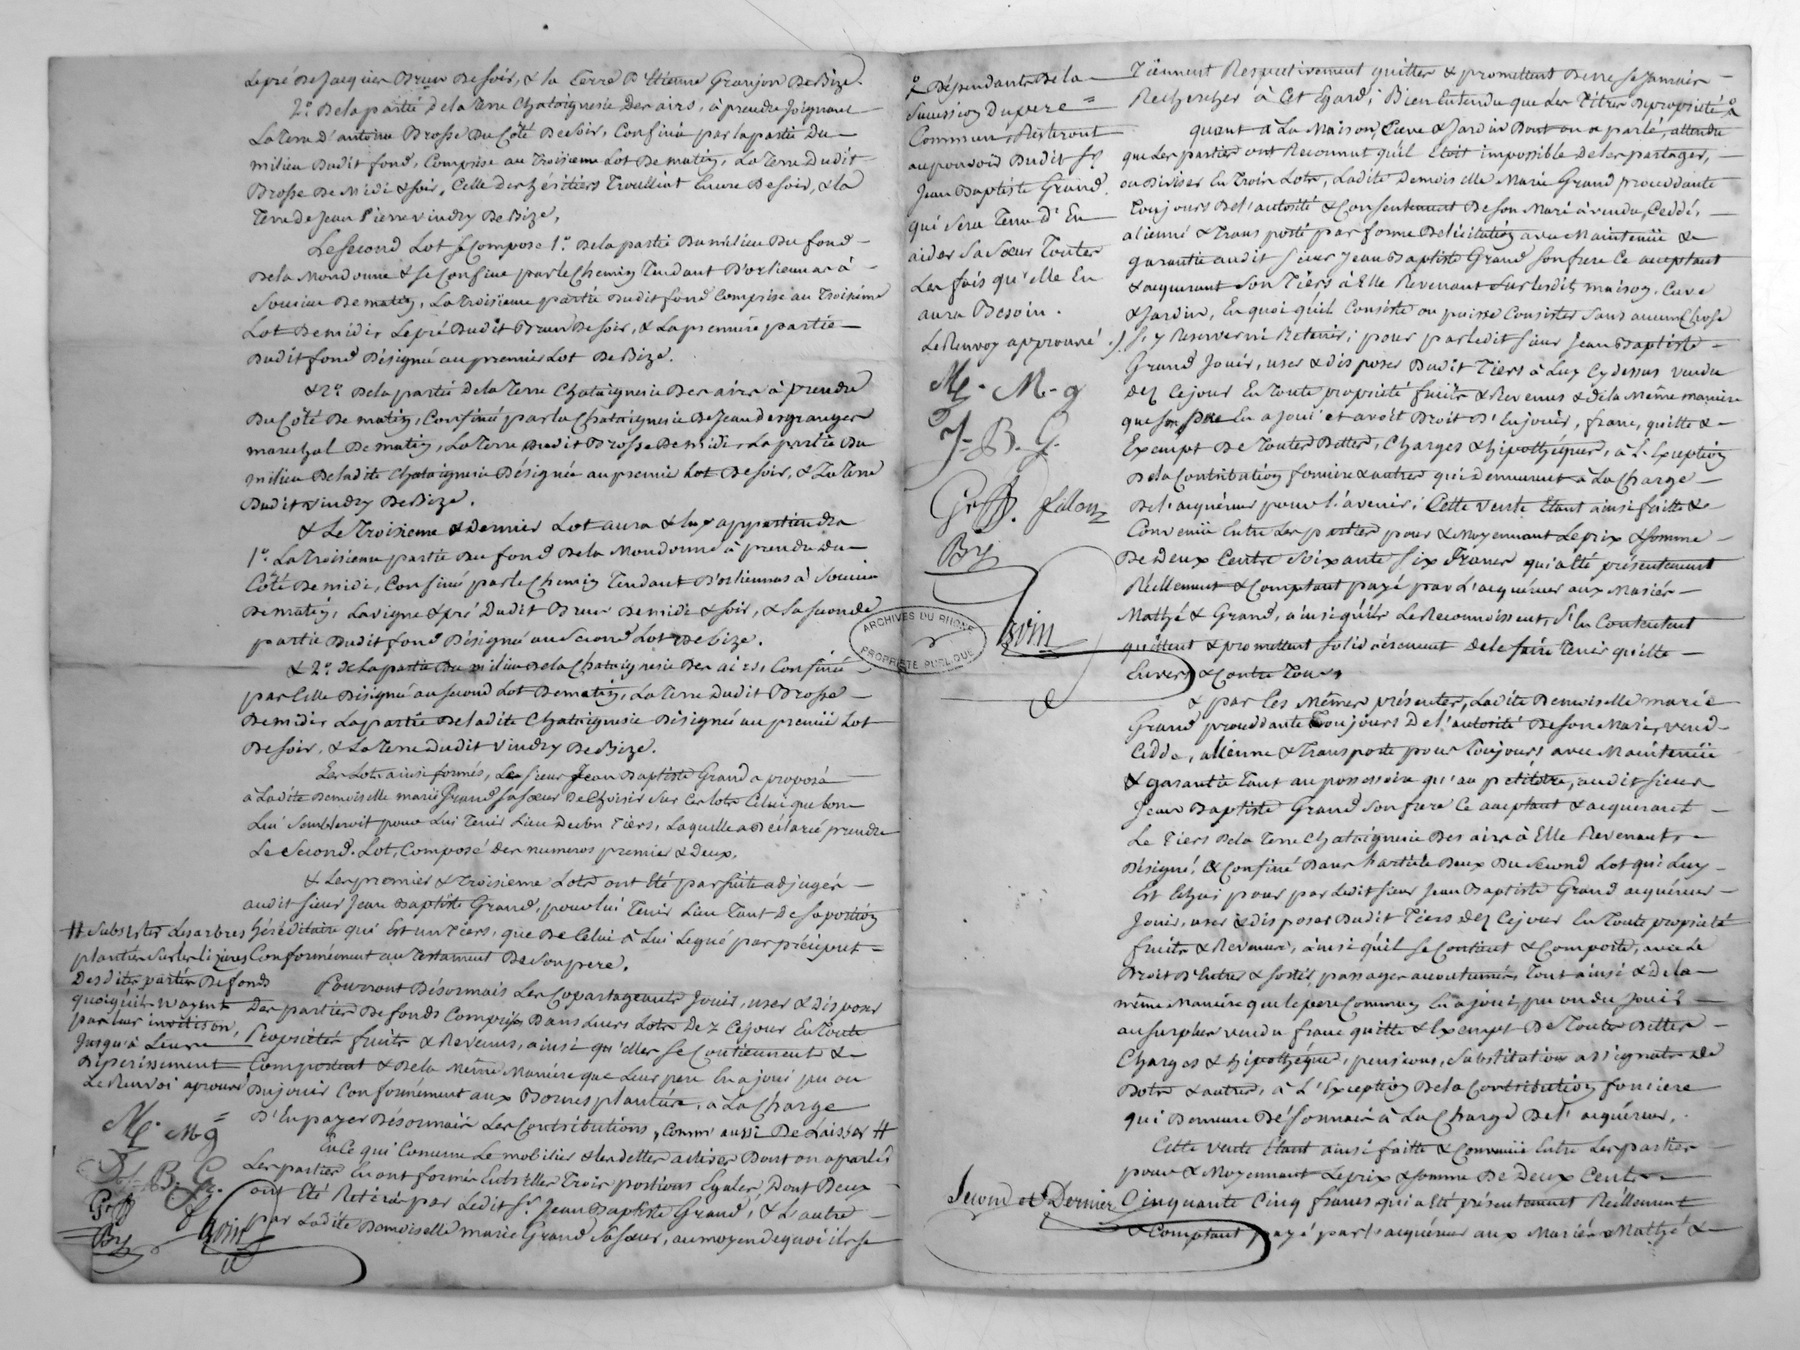 Le pré de Jacques Brun de soir, & la terre d'Etienne Granjon de Bize.
2.° De la partie de la terre Chataignerie des airs, à prendre joignant
La terre d'antoine Brosse du Côté de soir, Confiné par la partie du
milieu dudit fond, Comprise au Troisieme Lot De matin, La terre dudit
Brosse De Midi & soir, Celle des héritiers Troulliat Encore De soir, & la
Terre de Jean Pierre vindry De Bize,
Le Second Lot se Compose 1.° De la partie du milieu du fond
De la Mondonne & se Confine par le Chemin Tendant d'orliennas à
Soucieu De matin, La troisieme partie dudit fond Comprise au Troisième
Lot De midi, Le pré dudit Brun De soir, & La premiére partie
Dudit fond Désigné au premier Lot De Bize.
& 2.° De la partie de la terre Chataignerie Des aires à prendre
Du Côté De matin, Confiné par la Chataignerie De Jean desgranges
marechal De matin, La terre dudit Brosse De midi, La partie du
milieu De ladite Chataignerie Désignée au premier Lot De soir, & La terre
Dudit vindry De Bize.
& Le Troisieme & Dernier Lot aura & luy appartiendra
1.° La Troisieme partie Du fond De la Mondonne à prendre du
Côté De midi, Confiné par le Chemin Tendant d'orliennas à Soucieu
De matin, La vigne & pré Dudit Brun De midi & soir, & La seconde
partie Dudit fond Désigné au Second Lot De bize.
& 2.° De la partie Du milieu De la Chataignerie Des airs, Confiné
par Celle Désigné au second Lot De matin, La terre Dudit Brosse
De midi, La partie De ladite Chataignerie Désigné au premier Lot
De soir, & La terre Dudit vindry De Bize.
Les Lots ainsi formés, Le sieur Jean Baptiste Grand a proposé
à Ladite Demoiselle marie Grand sa sœur De Choisir sur Ces lots Celui que bon
Lui Sembleroit pour Lui Tenir Lieu De son Tiers, Laquelle a Déclaré prendre
Le Second Lot, Composé des numeros premier & Deux.
& Les premier & troisieme Lots ont Eté par suite adjugés
audit sieur Jean Baptiste Grand, pour lui Tenir Lieu Tant De sa portion
héréditaire qui Est un Tiers, que De Celui à Lui Legué par préciput
Conformément au Testament De son pere.
Pourront Désormais Les Copartageants Jouir, user & disposer
Des parties De fonds Comprises Dans Leurs Lots Dez Cejour En Toute
Propriété, fruits & Revenus, ainsi qu'elles se Contiennent &
Comportent & De la Même Maniére que Leur pere En a joui pu ou
Du jouir Conformément aux Bornes plantées, à La Charge
D'En payer Désormais Les Contributions, Comm' aussi De Laisser #
En Ce qui Concerne Le mobilier & Les dettes actives Dont on a parlé,
Les parties En ont formé Entr'Elles Trois portions Egales, Dont Deux
ont Eté Retirées par Ledit S.r Jean Baptiste Grand, & L'autre
par Ladite Demoiselle marie Grand Sa sœur, au moyen de quoi ils se
# Subsister Les arbres
plantés sur les lizieres
Desdites parties De fonds
quoiqu'ils n'ayent
par leur
Jusqu'à Leur
Dépérissement
Le Renvoi aprouvé
M. M g
J. B. G.
Geoff
Bry
Tiennent Respectivement quittes & promettent De ne se Jamais
Rechercher à Cet Egard; Bien Entendu que Les Titres De propriété
quant à La Maison, Cuve & Jardin Dont on a parlé, attendu
que Les parties ont Reconnut qu'il Etoit impossible De les partager,
ou Diviser En Trois Lots, Ladite Demoiselle Marie Grand procedante
Toujours De l'autorité & Consentement De son Mari à vendu, Ceddé,
aliené & Transporté par forme De licitation avec Maintenüe &
garantie audit sieur Jean Baptiste Grand son frere Ce acceptant
& acquerant Son Tiers à Elle Revenant sur lesdits maison, Cuve
& Jardin, En quoi qu'il Consiste ou puisse Consister sans aucune Chose
S'y Reserver ni Retenir; pour par ledit sieur Jean Baptiste
Grand Jouir, user & disposer Dudit Tiers à Luy Cydessus vendu
dez Cejour En toute propriété fruits & Revenus & de la Même maniére
que son pere En a joui et avoit Droit D'En jouir, franc, quitte &
Exempt De toutes Dettes, Charges & hipothéques, à L'Exception
De la Contribution fonciére & autres qui demeurent à La Charge
De l'acquéreur pour l'avenir; Cette vente Etant ainsi faitte &
Convenüe Entre Les parties pour & Moyennant Le prix & somme
De Deux Cents Soixante six francs qui a Eté présentement
Réellement & Comptant payé par L'acquéreur aux Mariés
Mathé & Grand, ainsi qu'ils Le Reconnoissent, S'En Contentent
quittent & promettent solidairement De le faire Tenir quitte
Envers & Contre Tous
& par Ces Mêmes présentes, Ladite Demoiselle marie
Grand procedante Toujours De l'autorité De son Mari, vend
Cedde, alienne & Transporte pour Toujours avec Maintenüe
& garantie Tant au possessoire qu'au petitoire, audit sieur
Jean Baptiste Grand son frere Ce acceptant & acquerant
Le Tiers De la Terre Chataignerie Des airs à Elle Revenant,
Désigné & Confiné Dans L'article Deux Du Second Lot qui Luy
Est Echu; pour par Ledit sieur Jean Baptiste Grand acquéreur
Jouir, user & disposer Dudit Tiers dez Cejour En Toute propriété
fruits & Revenus, ainsi qu'il se Contient & Comporte, avec Le
Droit D'Entrer & sortir, passages accoutumés, Tout ainsi & de la
même Maniére que le pere Commun En a joui pu ou du Jouir
au surplus vendu franc quitte & Exempt De toutes Dettes
Charges & hipothéques, pensions, Substitution assignats de
Dots & autres, à L'Exception De la Contribution fonciere
qui Demeure Désormais à La Charge De l'acquéreur.
Cette vente Etant ainsi faitte & Convenüe Entre Les parties
pour & Moyennant Le prix & somme De Deux Cents
Cinquante Cinq francs qui a Eté présentement Réellement
& Comptant payé par l'acquéreur aux Mariés Mathé &
Dépendants De la
Sucession Du pere
Commun, Resteront
au pouvoir Dudit S.r
Jean Baptiste Grand
qui sera Tenu d'En
aider Sa Sœur Toutes
Les fois qu'elle En
aura Besoin.
Le Renvoy approuvé.
M. M. g
J. B. G.
Geoff.
Bry
ARCHIVES DU RHONE
PROPRIETE PUBLIQUE
Second et Dernier